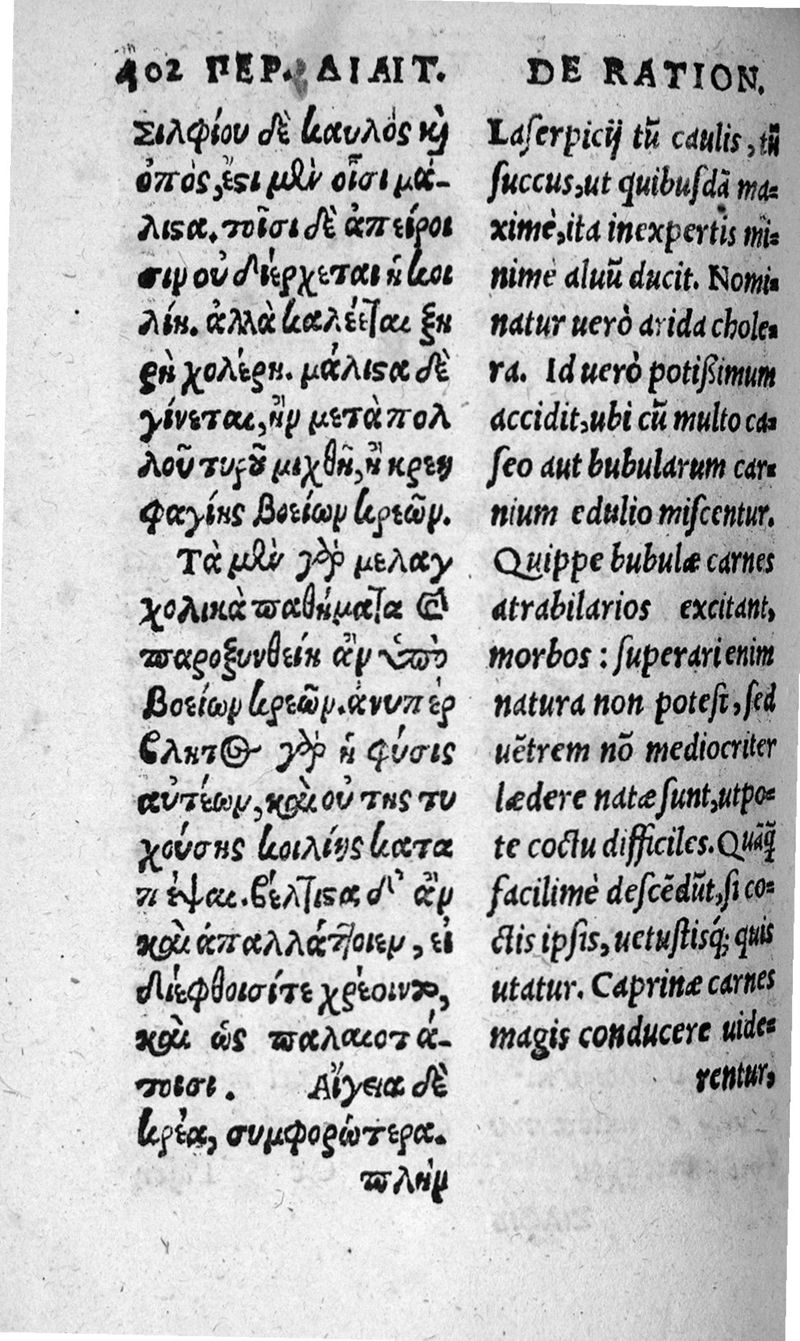 402 ΠΕΡ. ΔΙΑΙΤ.
Σιλφίου δὲ καυλὸς καὶ
ὀπὸς, ἔϛι μὲν οἷσι μά-
λιϛα. τοῖσι δὲ ἀπείροι
σιν οὐ διέρχεται ἡ κοι
λίη. ἀλλὰ καλέεται ξη
ρὴ χολέρη. μάλιϛα δὲ
γίνεται, ἢν μετὰ πολ
λοῦ τυροῦ μιχθῇ, ἢ κρεη
φαγίης βοείων κρεῶν.
Τὰ μὲν γὰρ μελαγ
χολικὰ παθήματα καὶ
παροξυνθείη ἂν ὑπὸ
βοείων κρεῶν. ἀνυπέρ
βλητος γὰρ ἡ φύσις
αὐτέων, καὶ οὐ της τυ
χούσης κοιλίης κατα
πέψαι. βέλτιϛα δ' ἂν
καὶ ἀπαλλάττοιεν, εἰ
διέφθοισίτε χρέοιντο,
καὶ ὡς παλαιοτά-
τοισι. Αἴγεια δὲ
κρέα, συμφορώτερα.
πλὴν
DE RATION.
Laserpicij tũ caulis, tũ
succus, ut quibusdã ma=
ximè, ita inexpertis mi=
nimè aluũ ducit. Nomi=
natur uerò arida chole=
ra. Id uerò potißimum
accidit, ubi cũ multo ca=
seo aut bubularum car=
nium edulio miscentur.
Quippe bubulæ carnes
atrabilarios excitant,
morbos : superari enim
natura non potest, sed
uẽtrem nõ mediocriter
lædere natæ sunt, utpo=
te coctu difficiles. Quãq̃
facilimè descẽdũt, si co=
ctis ipsis, uetustisq́; quis
utatur. Caprinæ carnes
magis conducere uide=
rentur,